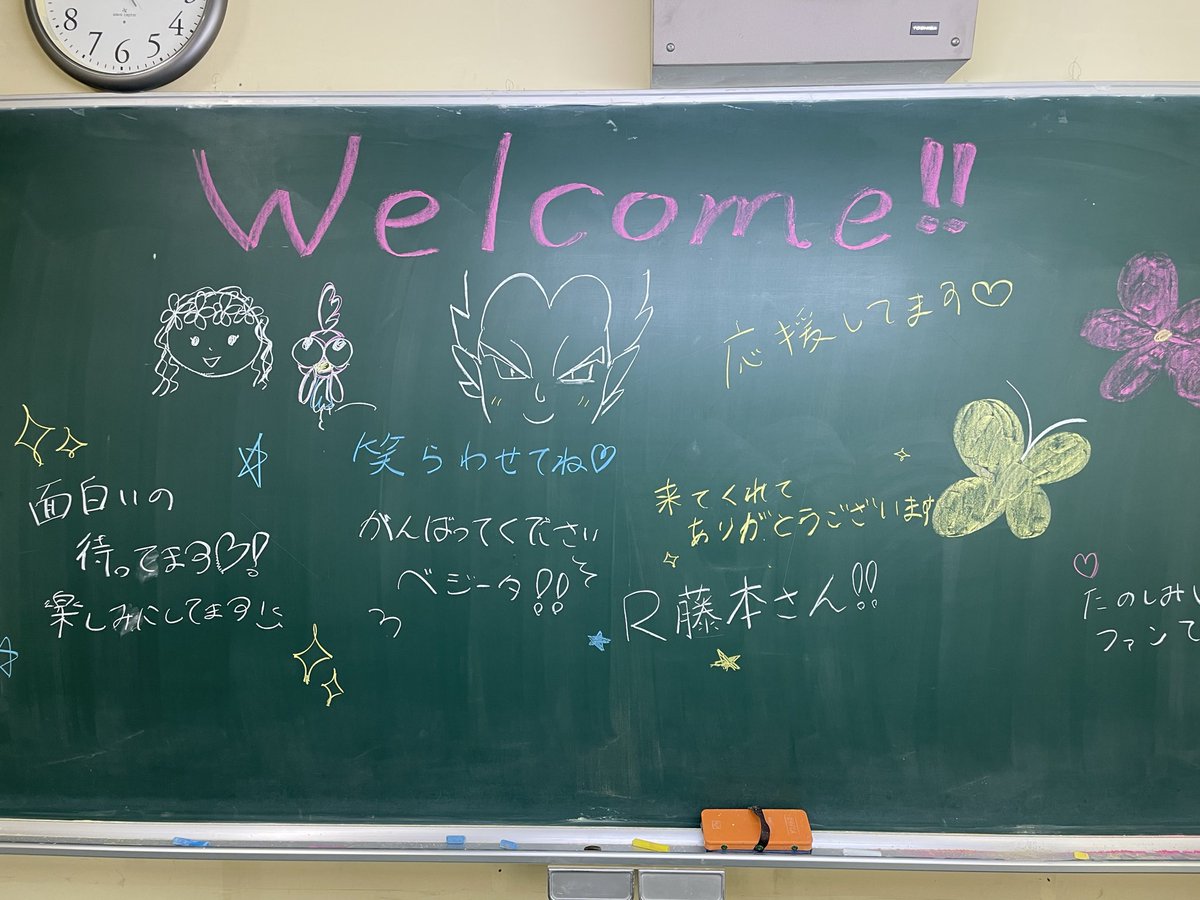 8 7 6 5 4
TOSHIBA
Welcome!!
応援してます♡
笑らわせてね♡
面白いの
待ってます♡!
楽しみにしてます
がんばってください
ベジータ!!
来てくれて
ありがとうございます
R藤本さん!!
たのしみ
ファンて